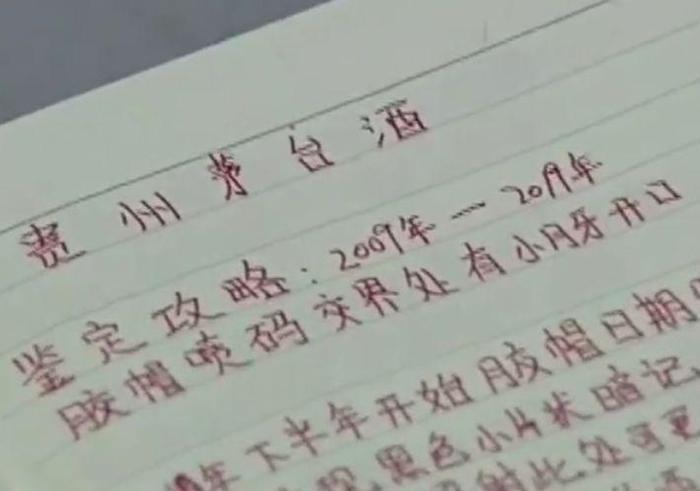 贵州茅台酒
鉴定攻略：2009年一2019年
胶帽喷码交界处有小月牙开口
年下半年开始胶帽日期
黑色小片状暗记
射此处可更